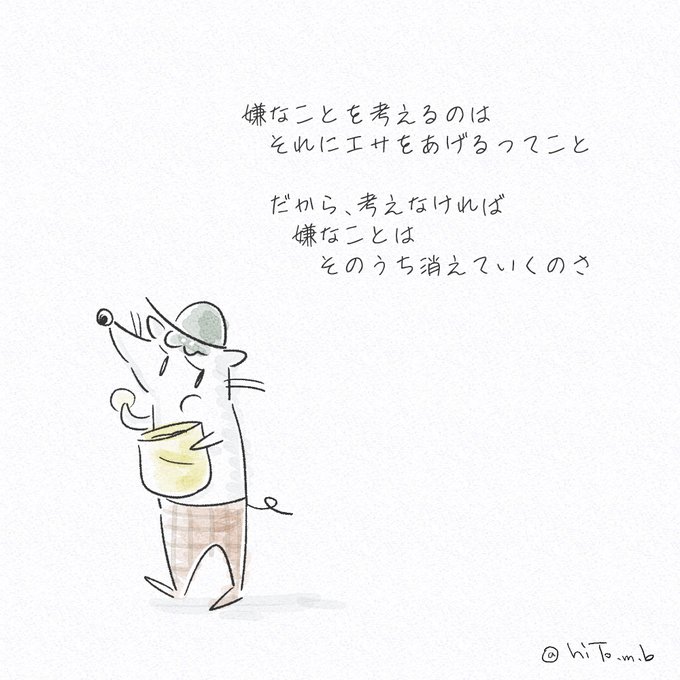 嫌なことを考えるのは
それにエサをあげるってこと
だから、考えなければ
嫌なことは
そのうち消えていくのさ
@hiTo.m.b